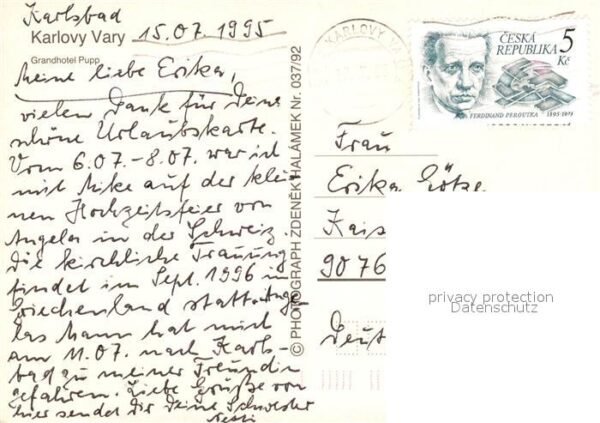 Karlsbad
Karlovy Vary 15.07.1995
Grandhotel Pupp
Meine liebe Erika,
vielen Dank für Deine
schöne Urlaubskarte.
Vom 6.07. - 8.07. war ich
mit Mike auf der klei
nen Hochzeitsfeier von
Angela in der Schweiz
Die kirchliche Trauung
findet im Sept. 1996 in
Griechenland statt. Ange
las Mann hat mich
am 11.07. nach Karls-
bad zu meiner Freundin
gefahren. Liebe Grüße von
hier sendet Dir Deine Schwester
© PHOTOGRAPH ZDENĚK HALÁMEK Nr. 037/92
KARLOVY VARY
ČESKÁ
REPUBLIKA 5
Kč
FERDINAND PEROUTKA 1895-1978
Frau
Erika Götze
Kais
9076
Deut
privacy protection
Datenschutz